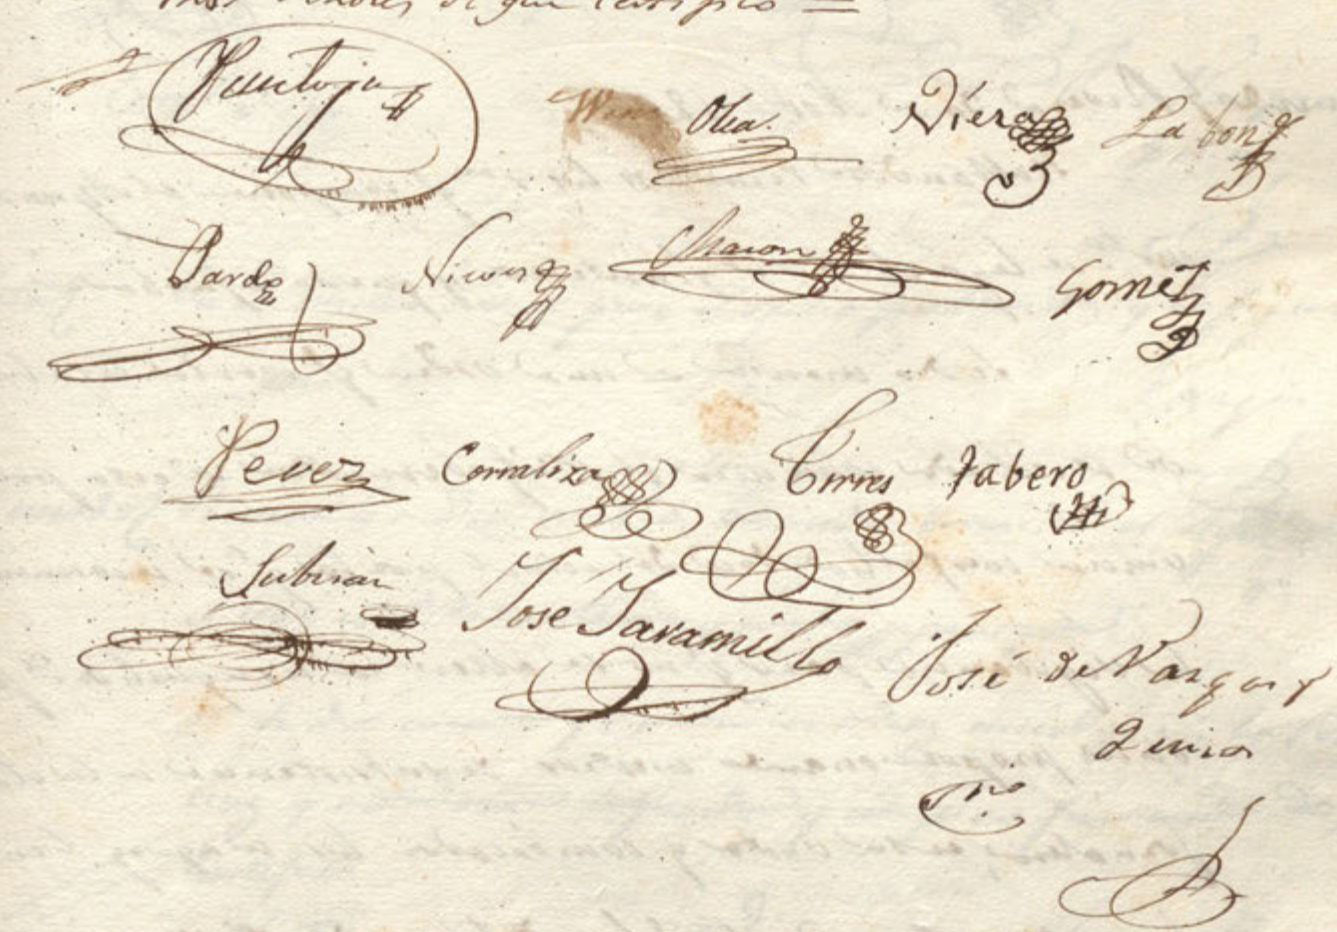 Señores de que certifico =
Pantoja Olea. Viera
Pardo Nieves Chacon Gomez
Perez Corraliza Torres Tabero
Subiran Jose Jaramillo José de Vargas y
Srio.